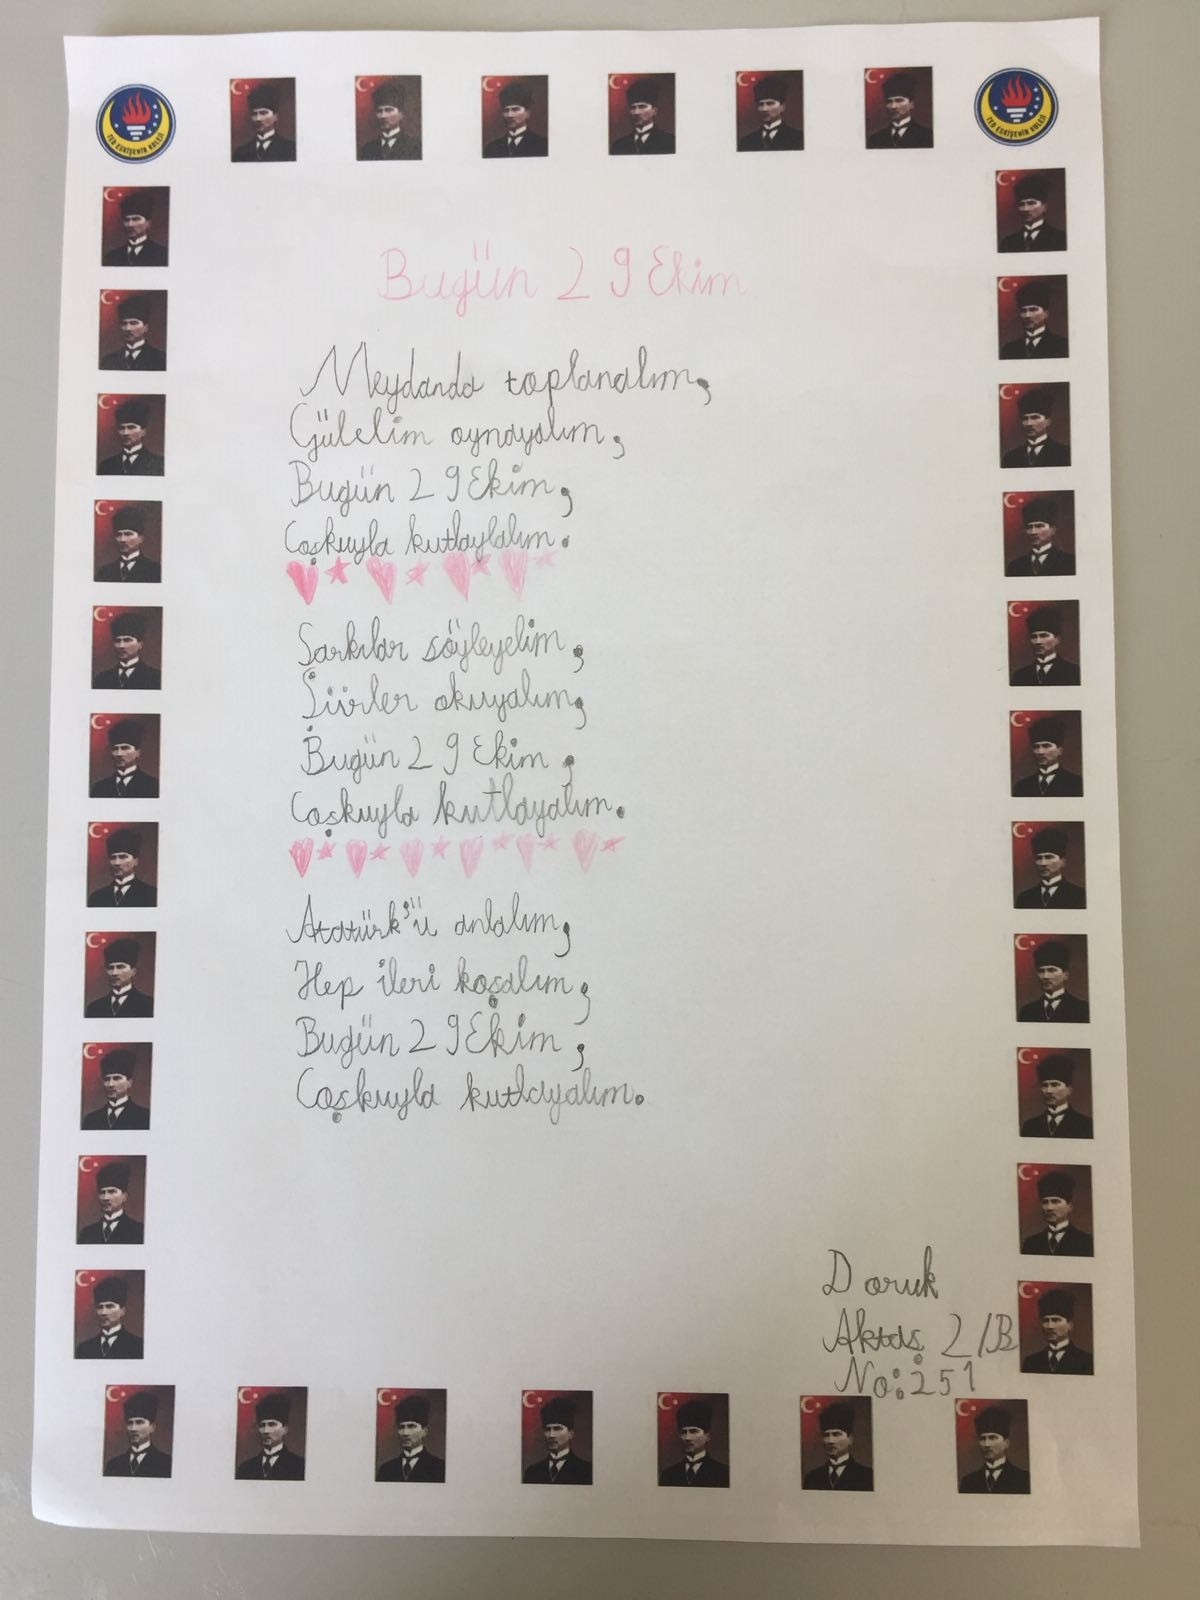 TED ESKİŞEHİR KOLEJİ
TED ESKİŞEHİR KOLEJİ
Bugün 29 Ekim
Meydanda toplanalım,
Gülelim oynayalım,
Bugün 29 Ekim,
Coşkuyla kutlaylalım.
Şarkılar söyleyelim,
Şiirler okuyalım,
Bugün 29 Ekim,
Coşkuyla kutlayalım.
Atatürk'ü anlalım,
Hep ileri koşalım,
Bugün 29 Ekim,
Coşkuyla kutlayalım.
Doruk
Aktaş 2/B
No:251